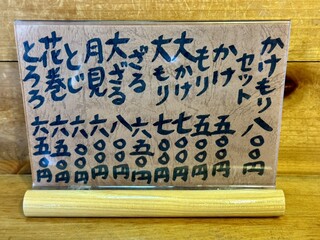 かけもり
セット 八〇〇円
かけ 五〇〇円
もり 五〇〇円
大かけ 七〇〇円
大もり 七〇〇円
ざる 六五〇円
大ざる 八〇〇円
月見 六〇〇円
とじ 六〇〇円
花巻 六五〇円
とろろ 六五〇円